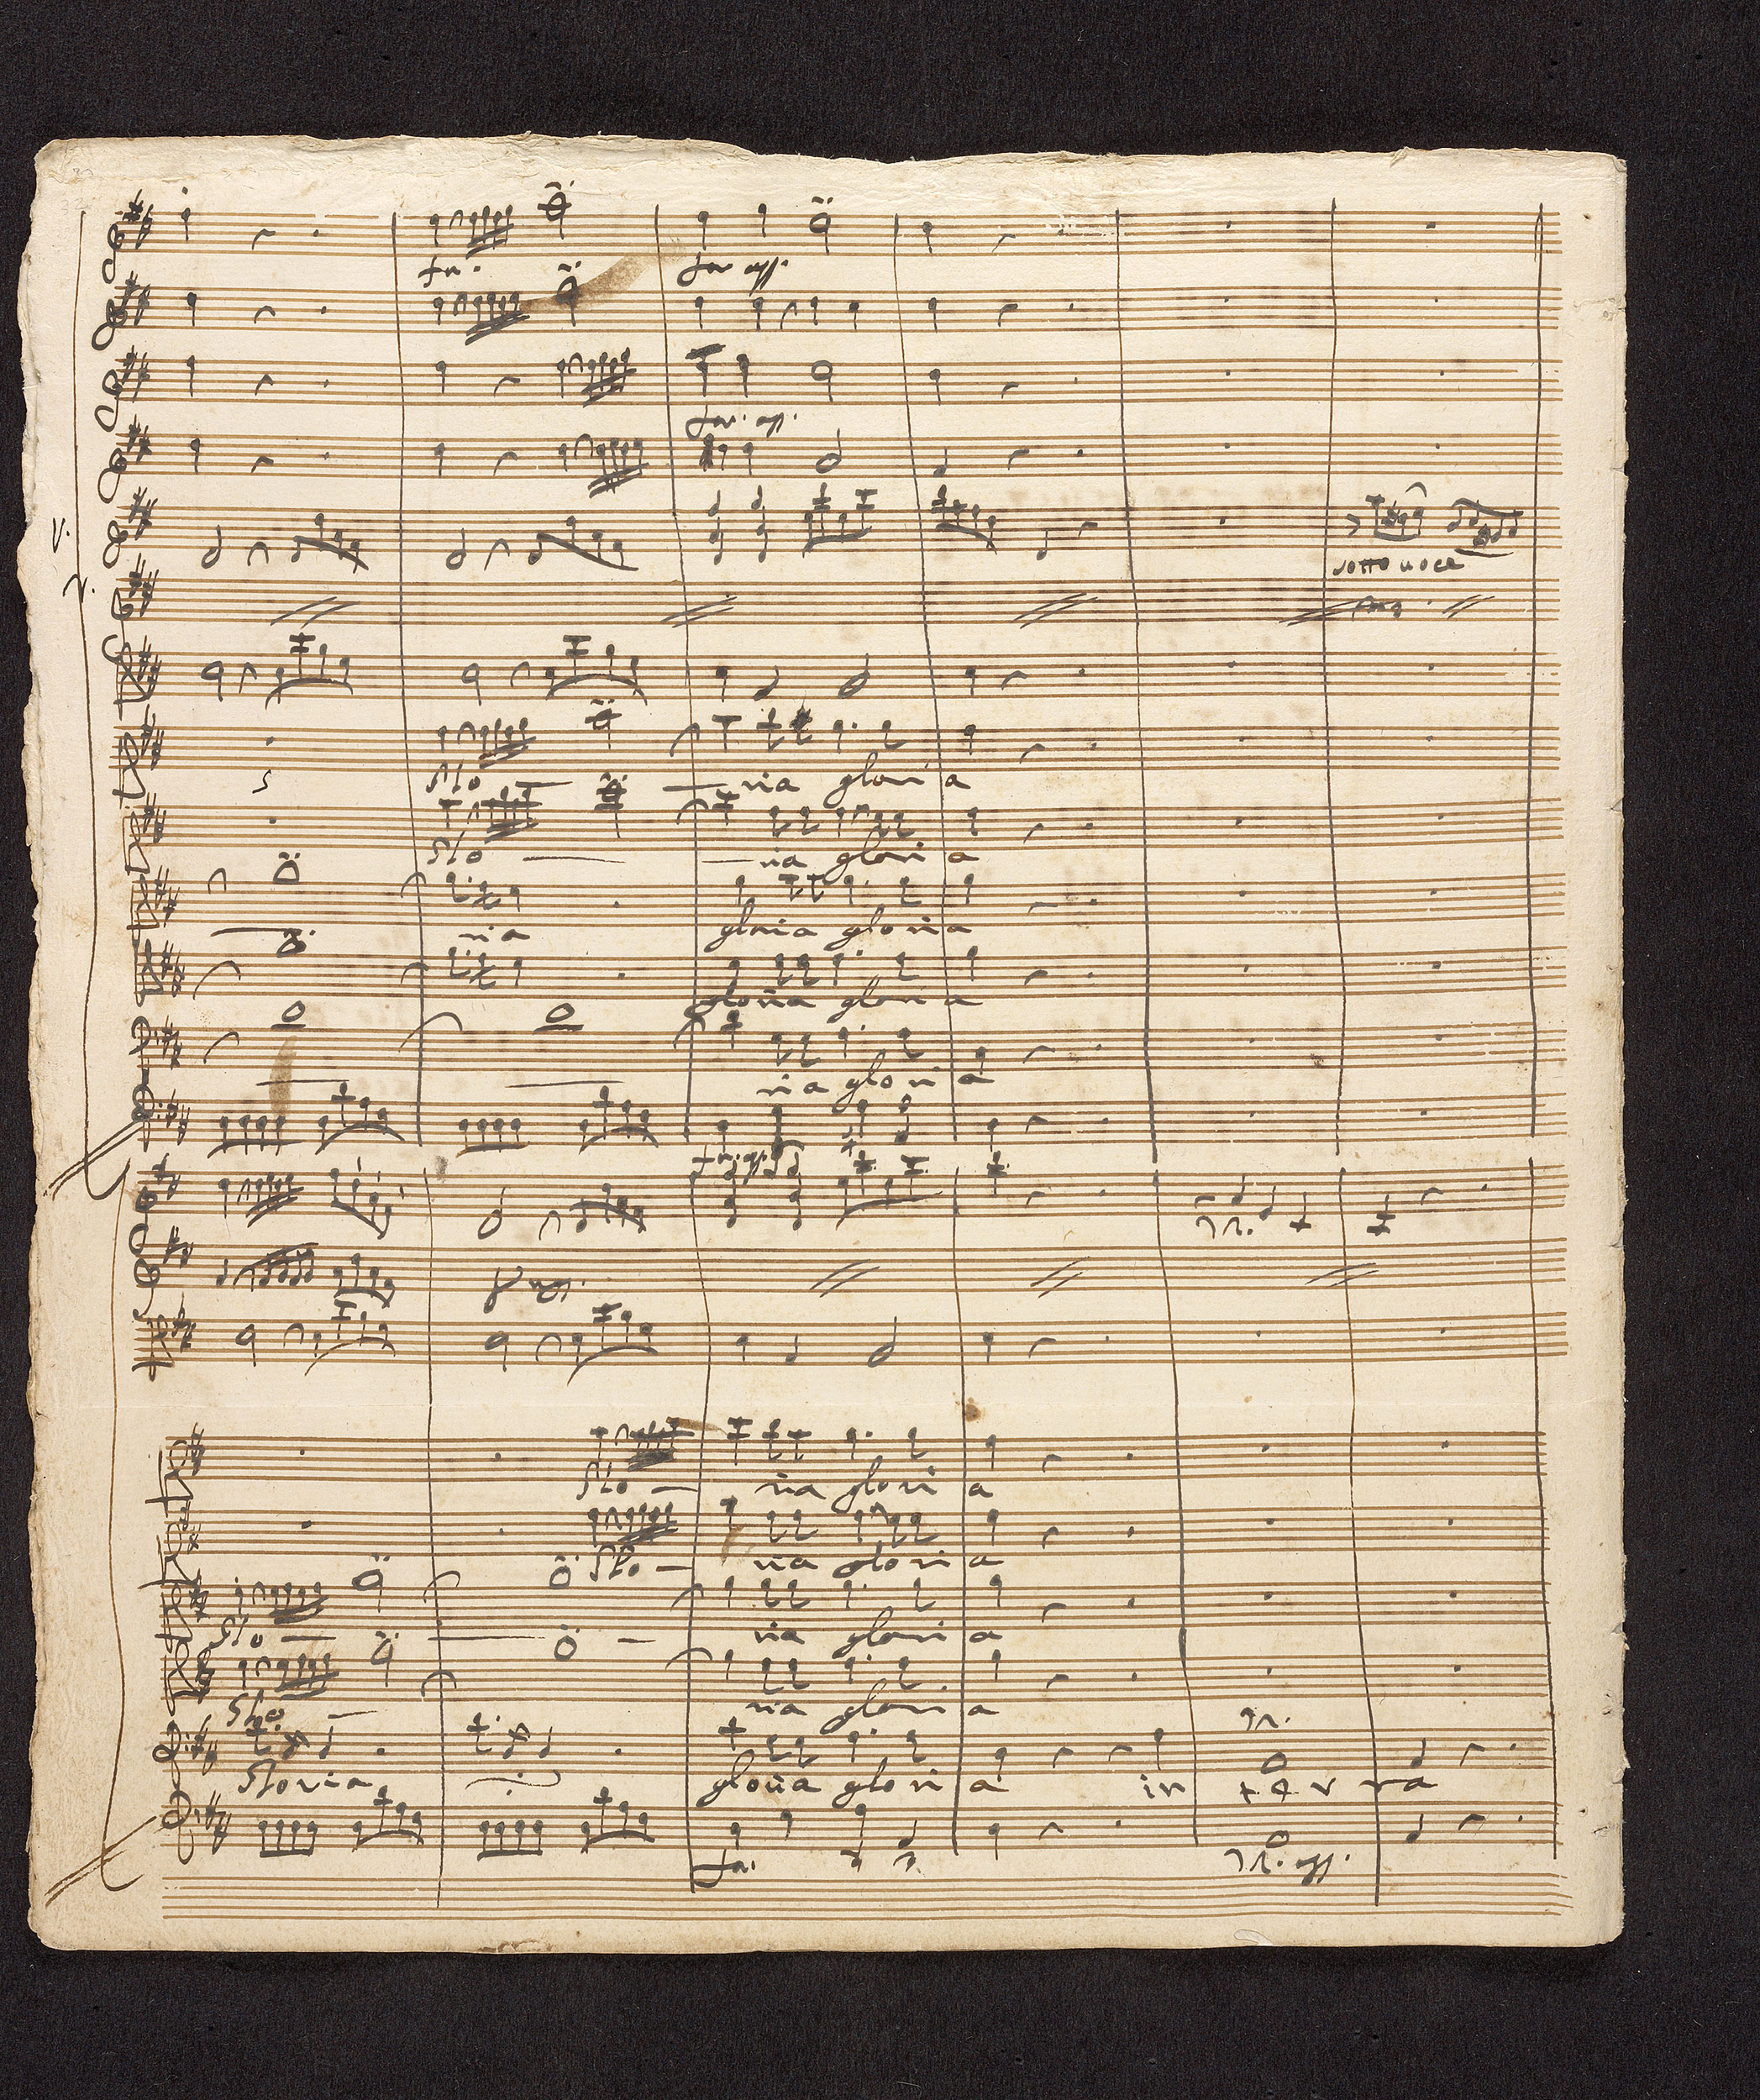 for. for. ass.
for. ass.
V.
sotto voce
V.
Glo ria glori a
Glo ria glori a
ria gloria gloria
gloria glori a
ria glori a
for. ass.
Glo ria glori a
Glo ria glori a
Glo ria glori a
Glo ria glori a
Gloria gloria glori a in terra
for.